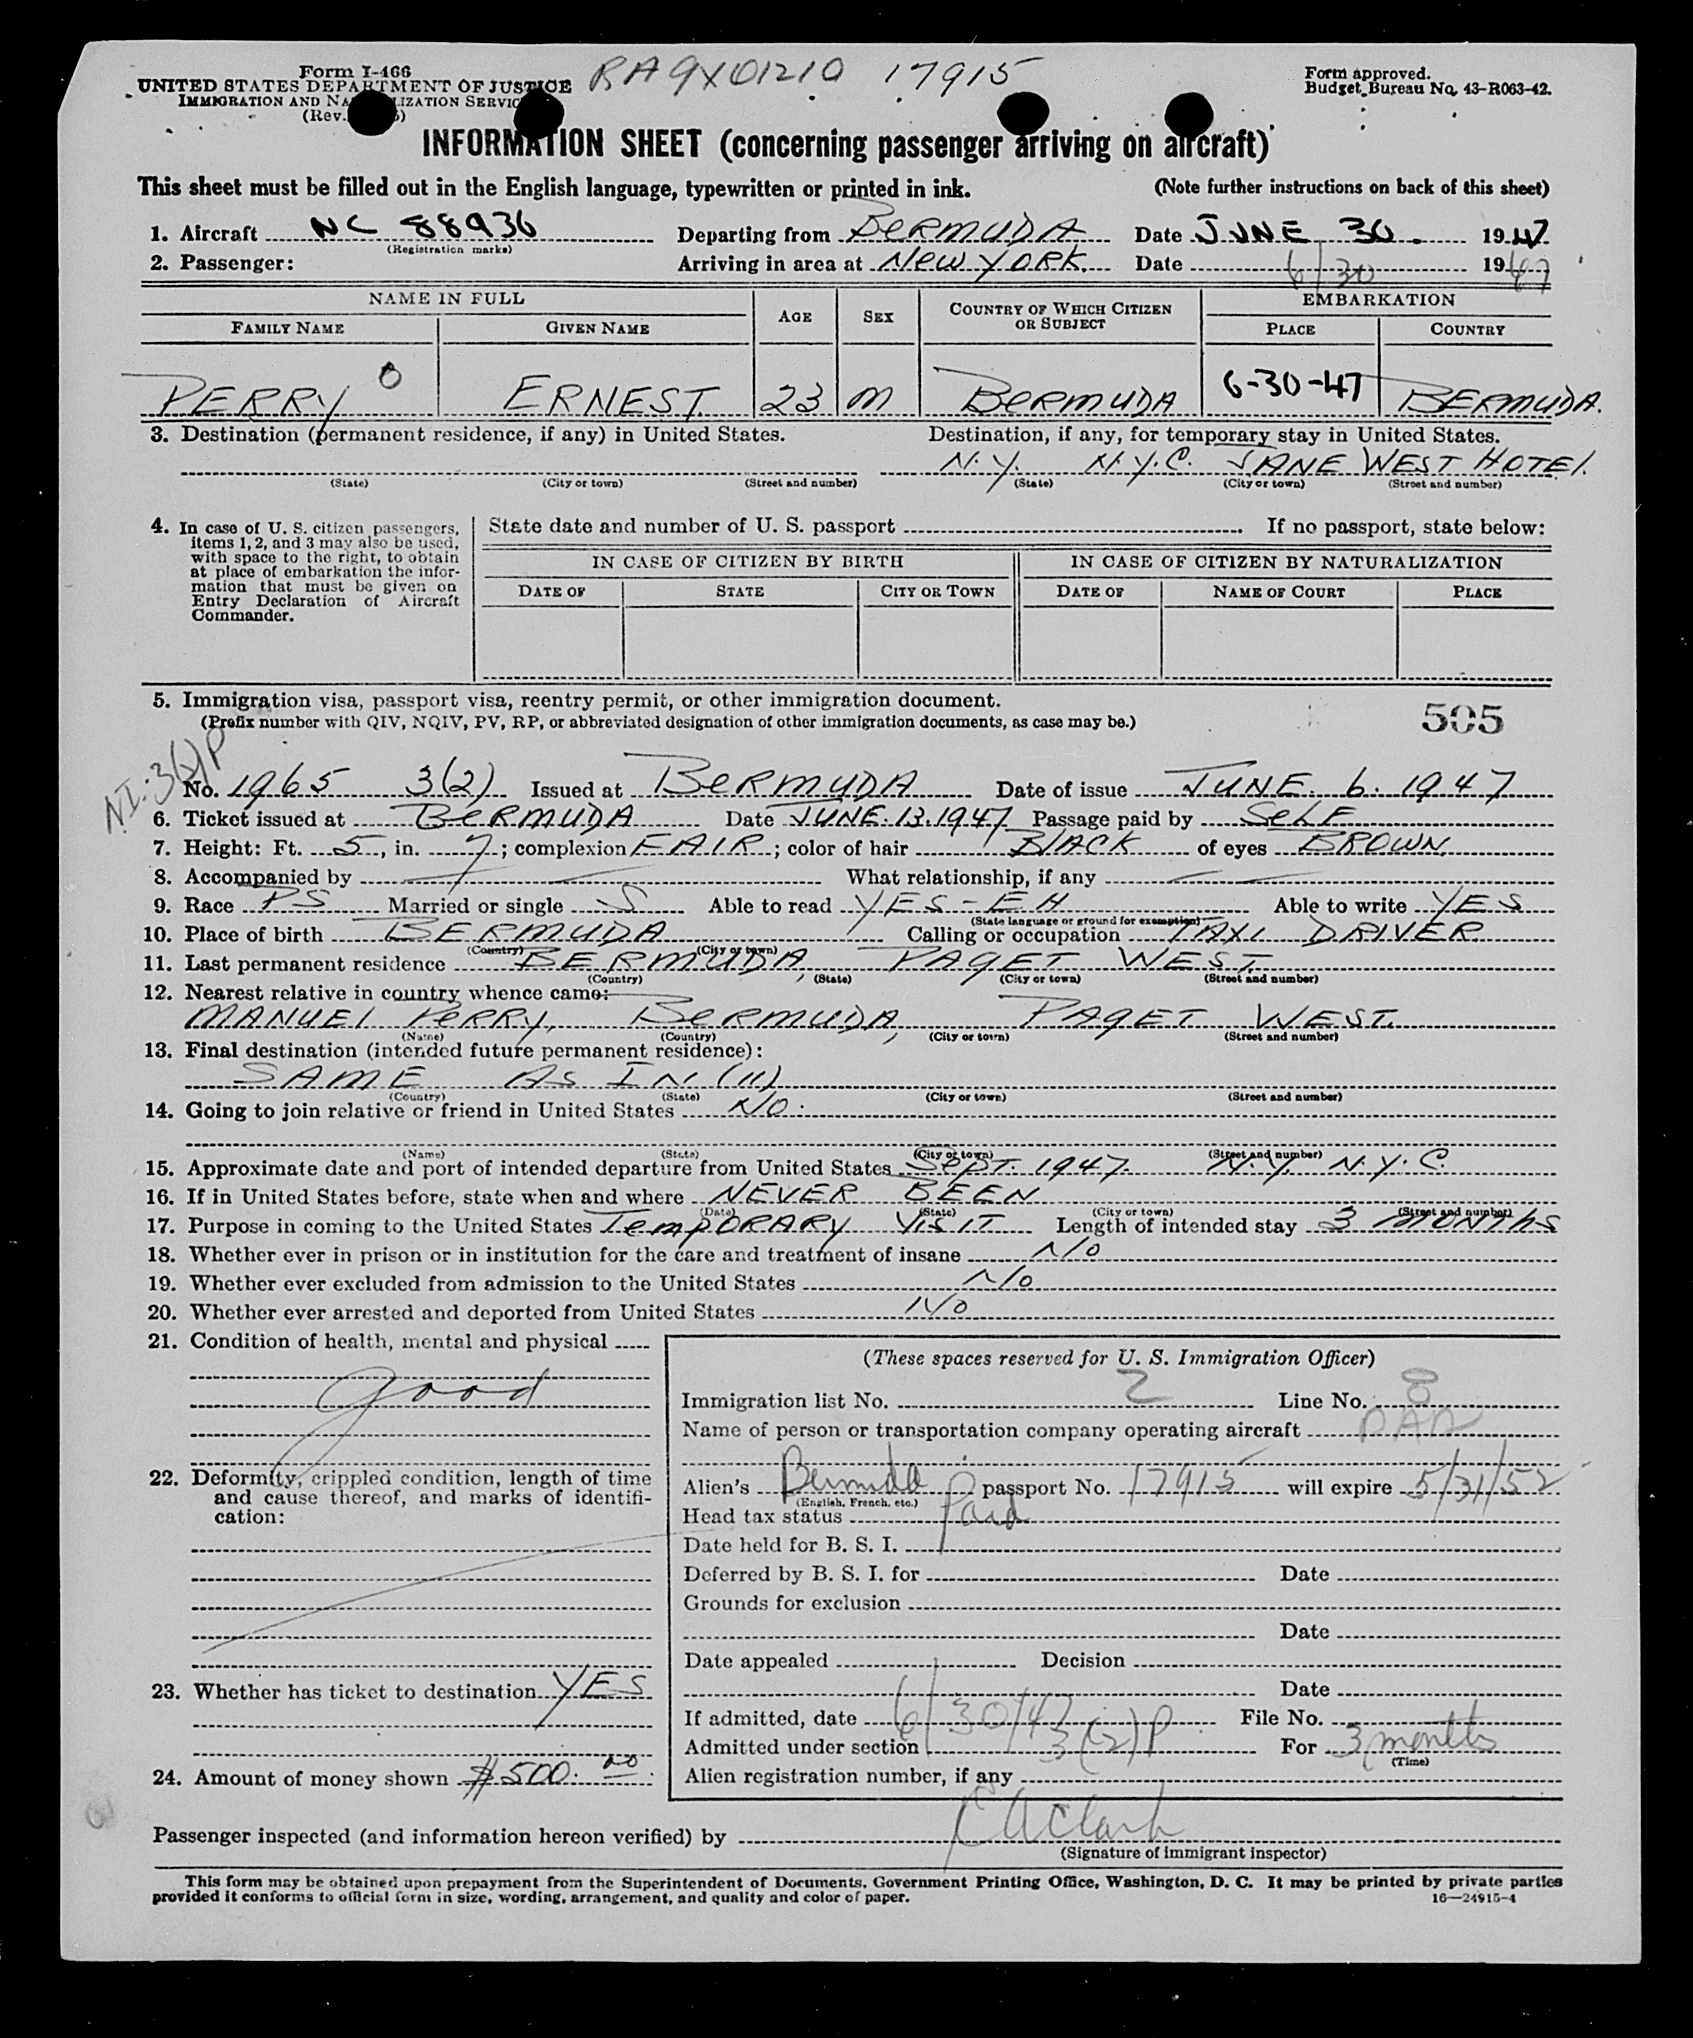 Form I-466
UNITED STATES DEPARTMENT OF JUSTICE
IMMIGRATION AND NA LIZATION SERVIC
(Rev. )
RA9X01210 17915
Form approved.
Budget Bureau No. 43-R063-42.
INFORMATION SHEET (concerning passenger arriving on aircraft)
This sheet must be filled out in the English language, typewritten or printed in ink. (Note further instructions on back of this sheet)
1. Aircraft NC 88936 Departing from BERMUDA Date JUNE 30. 1947
(Registration marks)
2. Passenger: Arriving in area at NEW YORK. Date 6/30 1947
NAME IN FULL AGE SEX COUNTRY OF WHICH CITIZEN OR SUBJECT EMBARKATION
FAMILY NAME GIVEN NAME PLACE COUNTRY
PERRY O ERNEST 23 M BERMUDA 6-30-47 BERMUDA.
3. Destination (permanent residence, if any) in United States. Destination, if any, for temporary stay in United States.
N.Y. N.Y.C. JANE WEST HOTEL.
(State) (City or town) (Street and number) (State) (City or town) (Street and number)
4. In case of U. S. citizen passengers,
items 1, 2, and 3 may also be used,
with space to the right, to obtain
at place of embarkation the infor-
mation that must be given on
Entry Declaration of Aircraft
Commander.
State date and number of U. S. passport If no passport, state below:
IN CASE OF CITIZEN BY BIRTH IN CASE OF CITIZEN BY NATURALIZATION
DATE OF STATE CITY OR TOWN DATE OF NAME OF COURT PLACE
5. Immigration visa, passport visa, reentry permit, or other immigration document.
(Prefix number with QIV, NQIV, PV, RP, or abbreviated designation of other immigration documents, as case may be.)
505
NI:3(2)P
No. 1965 3(2) Issued at BERMUDA Date of issue JUNE. 6. 1947
6. Ticket issued at BERMUDA Date JUNE.13.1947 Passage paid by SELF
7. Height: Ft. 5, in. 7; complexion FAIR; color of hair BLACK of eyes BROWN.
8. Accompanied by What relationship, if any
9. Race PS Married or single S Able to read YES-EH Able to write YES
(State language or ground for exemption)
10. Place of birth BERMUDA Calling or occupation TAXI DRIVER
(Country) (City or town)
11. Last permanent residence BERMUDA, PAGET WEST.
(Country) (State) (City or town) (Street and number)
12. Nearest relative in country whence came:
MANUEL PERRY, BERMUDA, PAGET WEST.
(Name) (Country) (City or town) (Street and number)
13. Final destination (intended future permanent residence):
SAME AS IN (11)
(Country) (State) (City or town) (Street and number)
14. Going to join relative or friend in United States NO.
(Name) (State) (City or town) (Street and number)
15. Approximate date and port of intended departure from United States SEPT. 1947. N.Y. N.Y.C.
16. If in United States before, state when and where NEVER BEEN
(Date) (State) (City or town) (Street and number)
17. Purpose in coming to the United States TEMPORARY VISIT Length of intended stay 3 MONTHS
18. Whether ever in prison or in institution for the care and treatment of insane NO
19. Whether ever excluded from admission to the United States NO
20. Whether ever arrested and deported from United States NO
21. Condition of health, mental and physical
good
22. Deformity, crippled condition, length of time
and cause thereof, and marks of identifi-
cation:
23. Whether has ticket to destination YES
24. Amount of money shown $500.00
(These spaces reserved for U. S. Immigration Officer)
Immigration list No. 2 Line No. 8
Name of person or transportation company operating aircraft PAA
Alien's Bermuda passport No. 17915 will expire 5/31/52
(English, French, etc.)
Head tax status Paid
Date held for B. S. I.
Deferred by B. S. I. for Date
Grounds for exclusion
Date
Date appealed Decision
Date
If admitted, date 6/30/47 File No.
Admitted under section 3(2)P For 3 months
(Time)
Alien registration number, if any
Passenger inspected (and information hereon verified) by
(Signature of immigrant inspector)
This form may be obtained upon prepayment from the Superintendent of Documents, Government Printing Office, Washington, D. C. It may be printed by private parties
provided it conforms to official form in size, wording, arrangement, and quality and color of paper. 16—24915-4